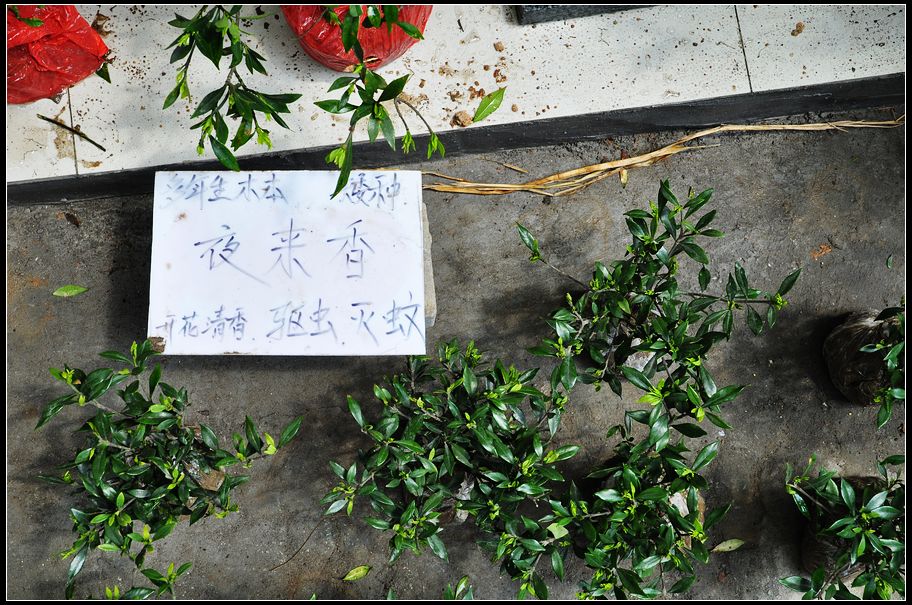 多年生木本 矮种
夜来香
开花清香 驱虫灭蚊